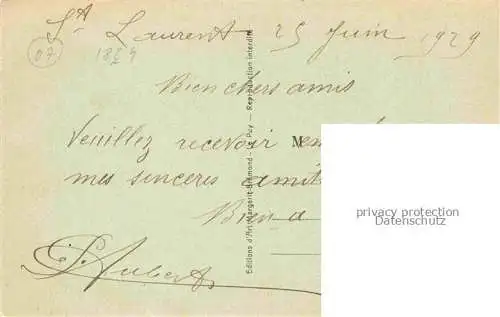 St Laurent 25 Juin 1929
07
Bien chers amis
Veuillez recevoir
mes sinceres amit
Bien a
Aubert
M
Editions d'Art Margerit-Brémond — Le Puy — Reproduction interdite
privacy protection
Datenschutz